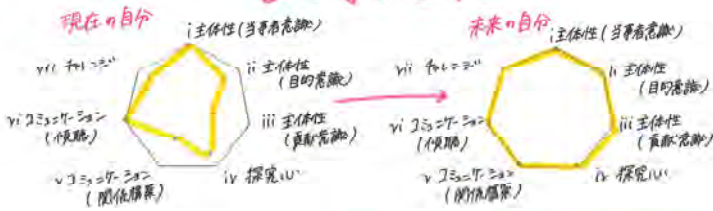 現在の自分
i 主体性(当事者意識)
ii 主体性
(目的意識)
iii 主体性
(貢献意識)
iv 探究心
v コミュニケーション
(関係構築)
vi コミュニケーション
(傾聴)
vii チャレンジ
未来の自分
i 主体性(当事者意識)
ii 主体性
(目的意識)
iii 主体性
(貢献意識)
iv 探究心
v コミュニケーション
(関係構築)
vi コミュニケーション
(傾聴)
vii チャレンジ